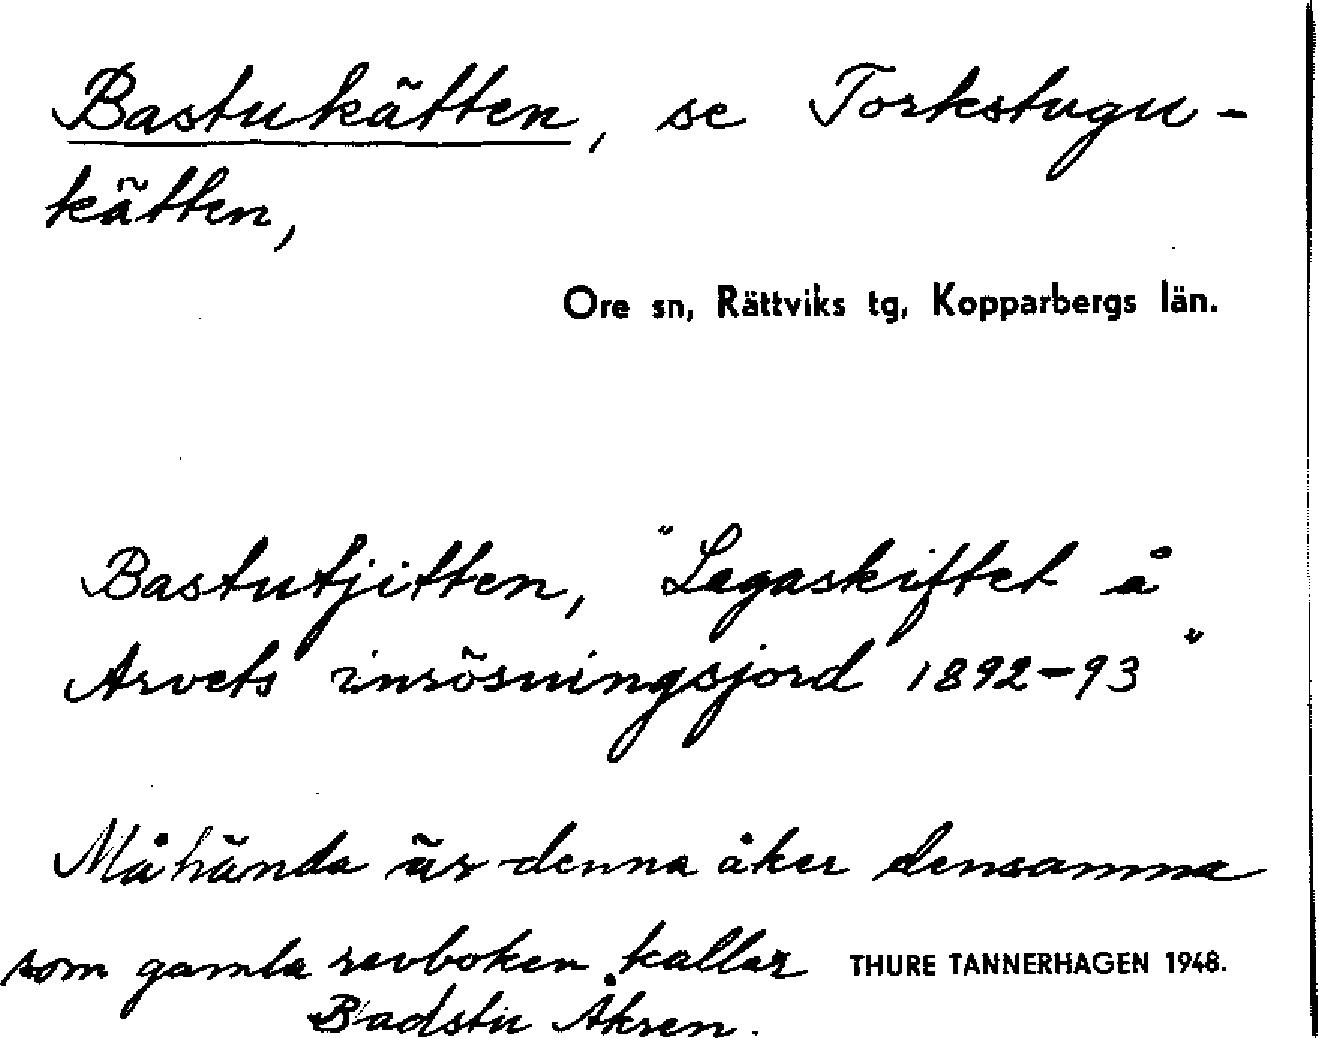 Bastukätten, se Torkstugu-
kätten,
Ore sn, Rättviks tg, Kopparbergs län.
Bastutjitten, "Lagaskiftet å
Arvets inrösningsjord 1892-93"
Måhända är denna åker densamma
som gamla revboken kallar
THURE TANNERHAGEN 1948.
Badstu Åkren.